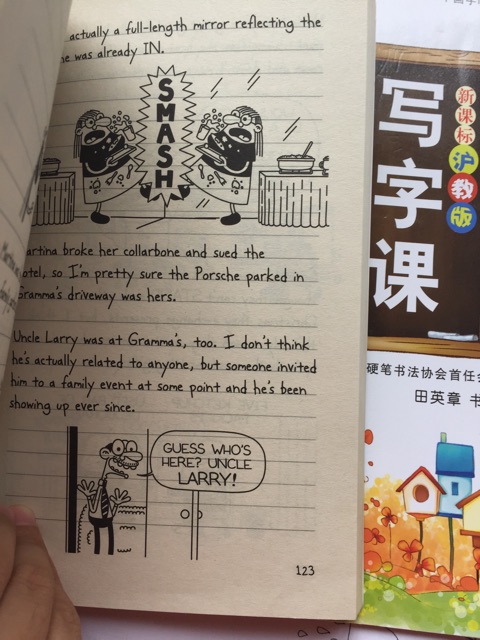 actually a full-length mirror reflecting the
he was already IN.
SMASH
artina broke her collarbone and sued the
otel, so I'm pretty sure the Porsche parked in
Gramma's driveway was hers.
Uncle Larry was at Gramma's, too. I don't think
he's actually related to anyone, but someone invited
him to a family event at some point and he's been
showing up ever since.
GUESS WHO'S
HERE? UNCLE
LARRY!
123
写字课
新课标
沪教版
硬笔书法协会首任会
田英章 书